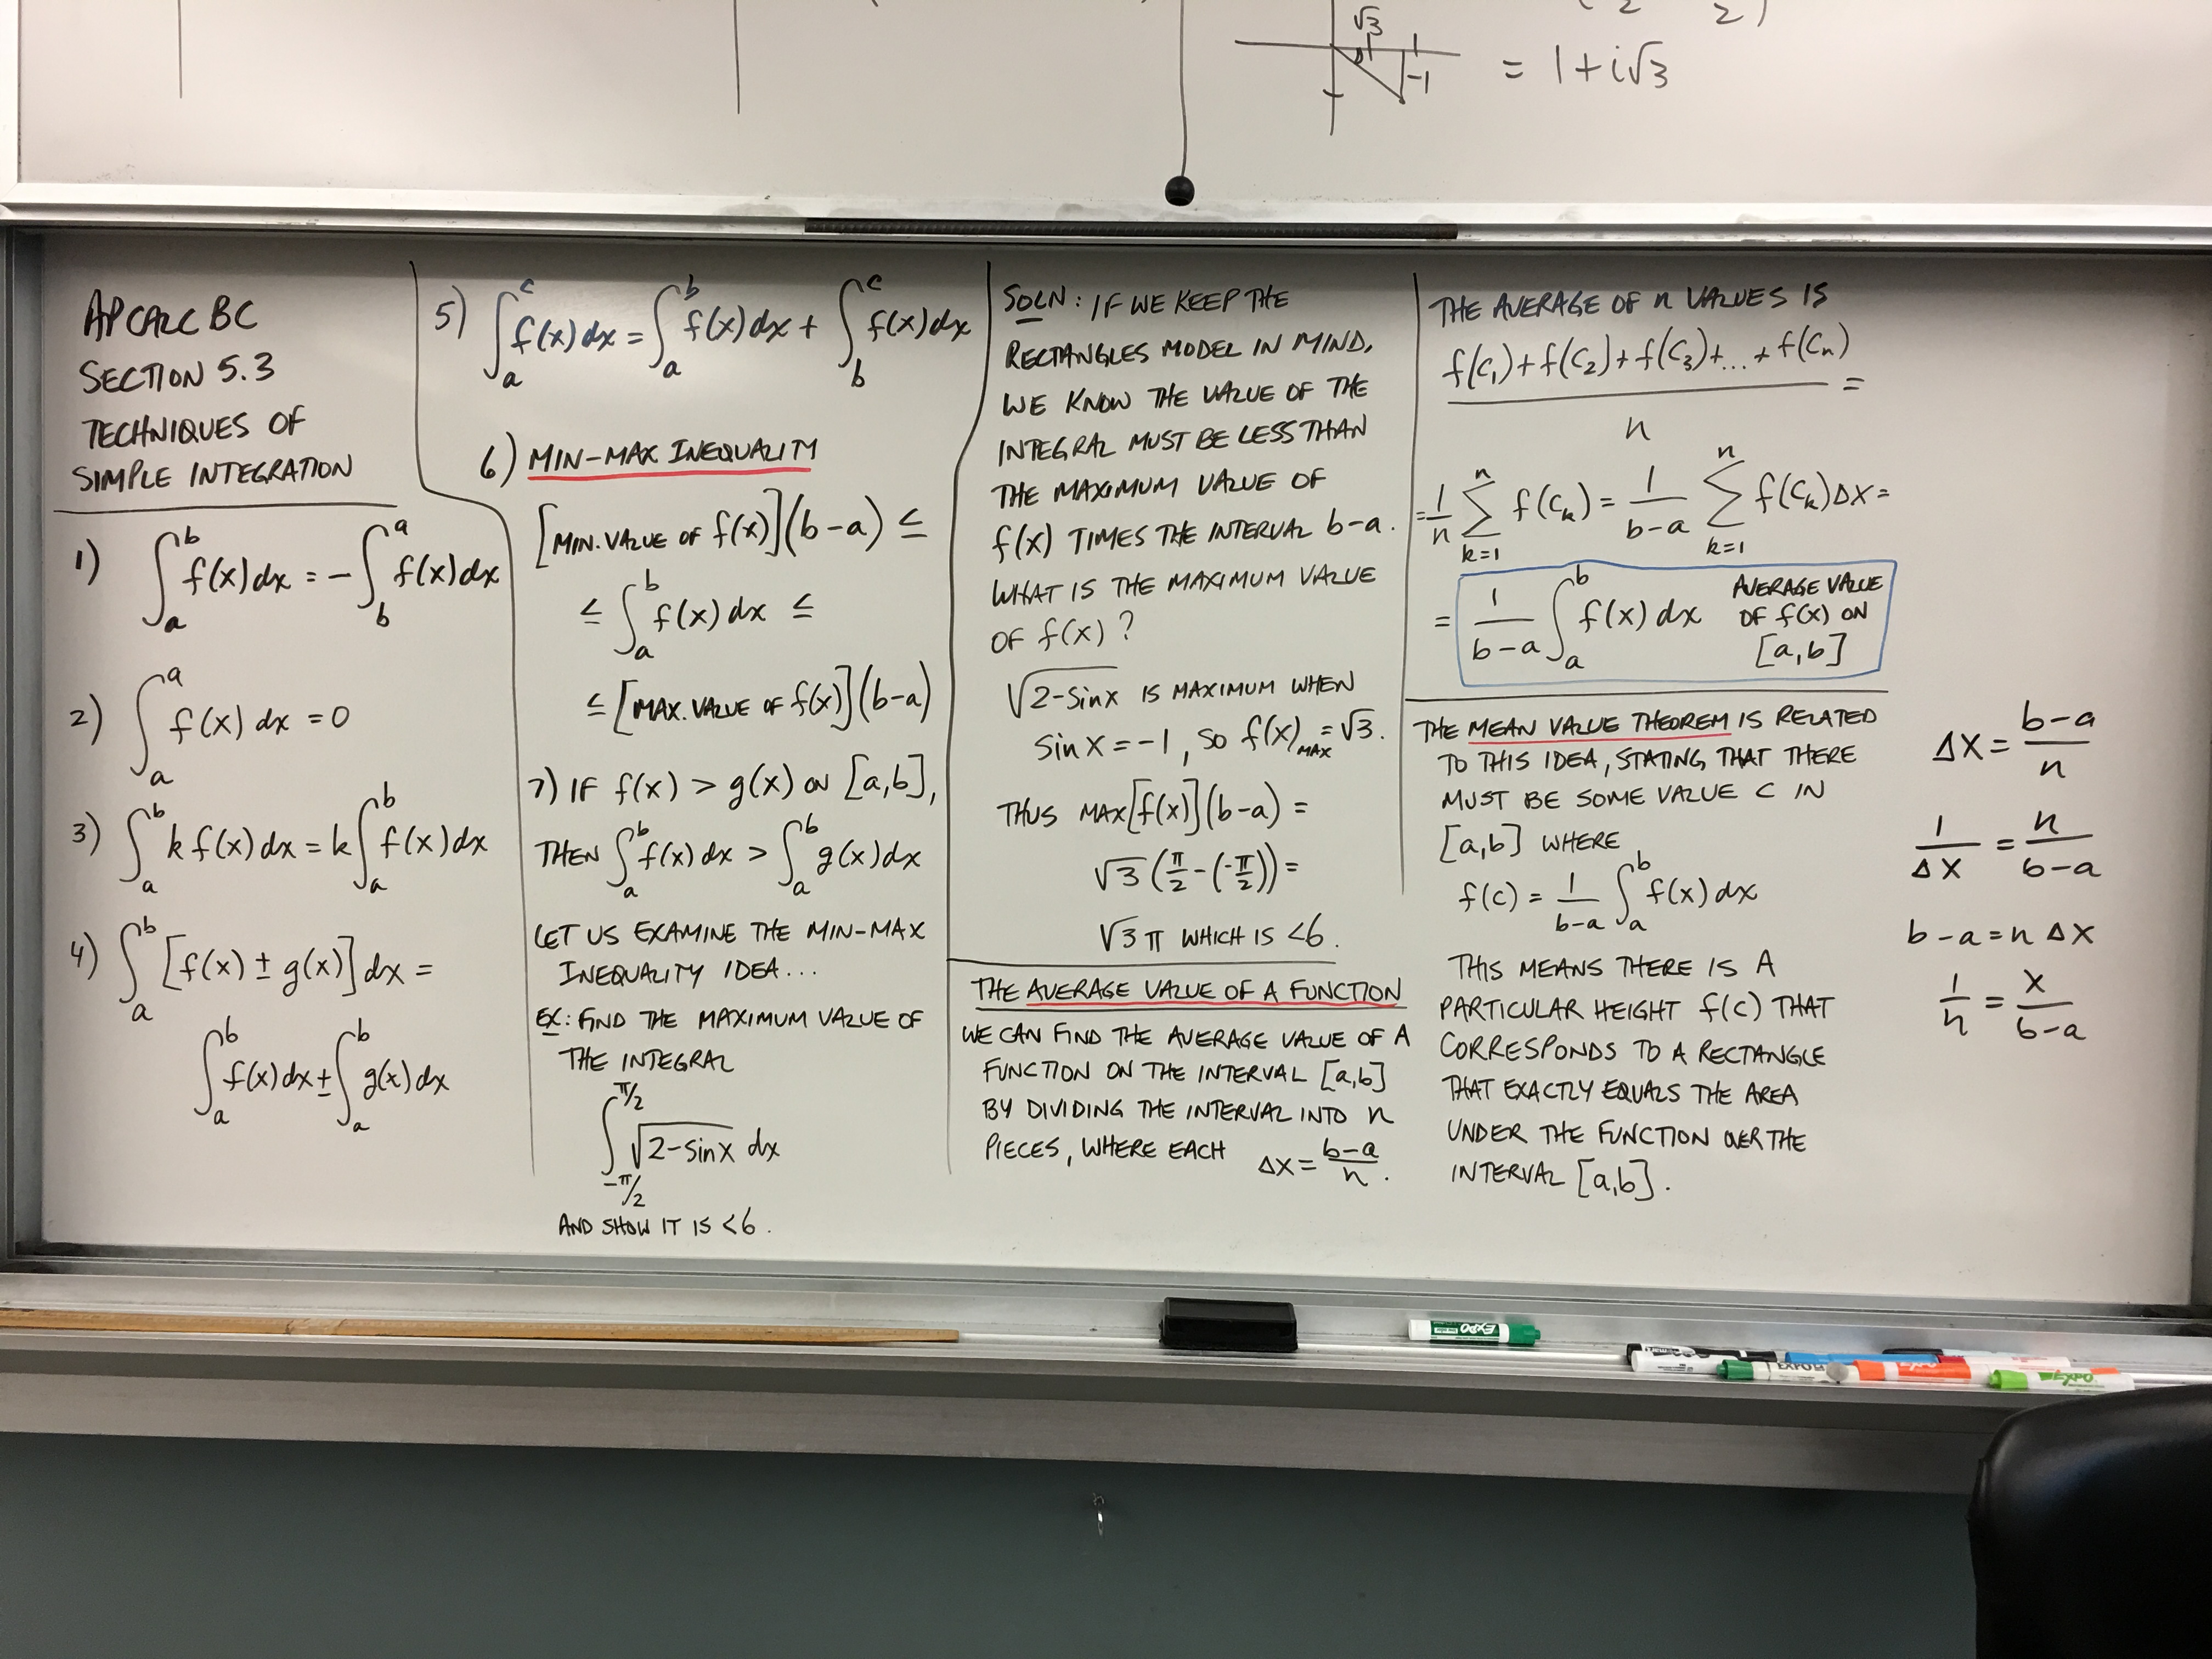 √3
2 2)
1
-1
= 1+i√3
AP CALC BC
SECTION 5.3
TECHNIQUES OF
SIMPLE INTEGRATION
1) ∫_a^b f(x)dx = -∫_b^a f(x)dx
2) ∫_a^a f(x) dx = 0
3) ∫_a^b k f(x)dx = k∫_a^b f(x)dx
4) ∫_a^b [f(x) ± g(x)]dx =
∫_a^b f(x)dx ± ∫_a^b g(x)dx
5) ∫_a^c f(x)dx = ∫_a^b f(x)dx + ∫_b^c f(x)dx
6) MIN-MAX INEQUALITY
[MIN. VALUE OF f(x)](b-a) ≤
≤ ∫_a^b f(x) dx ≤
≤ [MAX. VALUE OF f(x)](b-a)
7) IF f(x) > g(x) ON [a,b],
THEN ∫_a^b f(x)dx > ∫_a^b g(x)dx
LET US EXAMINE THE MIN-MAX
INEQUALITY IDEA...
EX: FIND THE MAXIMUM VALUE OF
THE INTEGRAL
∫_{-π/2}^{π/2} √(2-sinx) dx
AND SHOW IT IS <6.
SOLN: IF WE KEEP THE
RECTANGLES MODEL IN MIND,
WE KNOW THE VALUE OF THE
INTEGRAL MUST BE LESS THAN
THE MAXIMUM VALUE OF
f(x) TIMES THE INTERVAL b-a.
WHAT IS THE MAXIMUM VALUE
OF f(x)?
√(2-sinx) IS MAXIMUM WHEN
sinx = -1, SO f(x)_MAX = √3.
THUS MAX[f(x)](b-a) =
√3(π/2-(-π/2)) =
√3 π WHICH IS <6.
THE AVERAGE VALUE OF A FUNCTION
WE CAN FIND THE AVERAGE VALUE OF A
FUNCTION ON THE INTERVAL [a,b]
BY DIVIDING THE INTERVAL INTO n
PIECES, WHERE EACH Δx = (b-a)/n.
THE AVERAGE OF n VALUES IS
(f(c₁)+f(c₂)+f(c₃)+...+f(cₙ))/n =
= 1/n ∑_{k=1}^n f(cₖ) = 1/(b-a) ∑_{k=1}^n f(cₖ)Δx =
= 1/(b-a) ∫_a^b f(x) dx AVERAGE VALUE
OF f(x) ON
[a,b]
THE MEAN VALUE THEOREM IS RELATED
TO THIS IDEA, STATING THAT THERE
MUST BE SOME VALUE C IN
[a,b] WHERE
f(c) = 1/(b-a) ∫_a^b f(x)dx
THIS MEANS THERE IS A
PARTICULAR HEIGHT f(c) THAT
CORRESPONDS TO A RECTANGLE
THAT EXACTLY EQUALS THE AREA
UNDER THE FUNCTION OVER THE
INTERVAL [a,b].
Δx = (b-a)/n
1/Δx = n/(b-a)
b-a = n Δx
1/n = x/(b-a)
EXPO
EXPO
EXPO